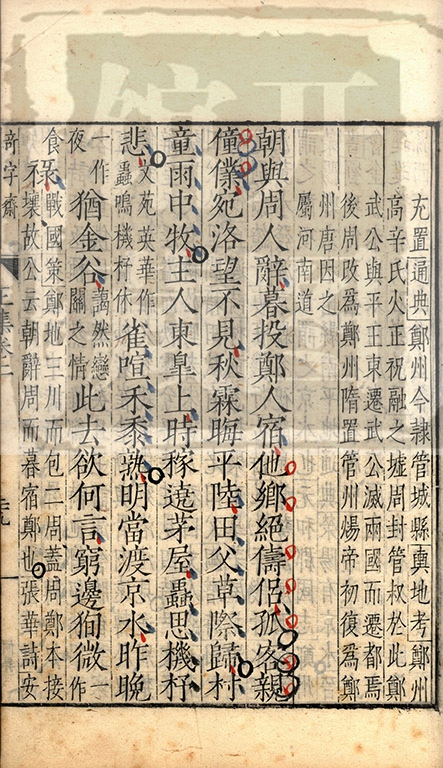 充置通典鄭州今隸管城縣輿地考鄭州
高辛氏火正祝融之墟周封管叔於此鄭
武公與平王東遷武公滅兩國而遷都焉
後周改為鄭州隋置管州煬帝初復為鄭
州唐因之
屬河南道
朝與周人辭暮投鄭人宿他鄉絕儔侶孤客親
僮僕宛洛望不見秋霖晦平陸田父草際歸村
童雨中牧主人東皐上時稼遶茅屋蟲思機杼
悲文苑英華作蟲鳴機杼休雀喧禾黍熟明當渡京水昨晚
一作夜猶金谷藹然戀關之情此去欲何言窮邊徇微一作
食祿戰國策鄭地三川而包二周蓋周鄭本接壤故公云朝辭周而暮宿鄭也張華詩安
奇字齋